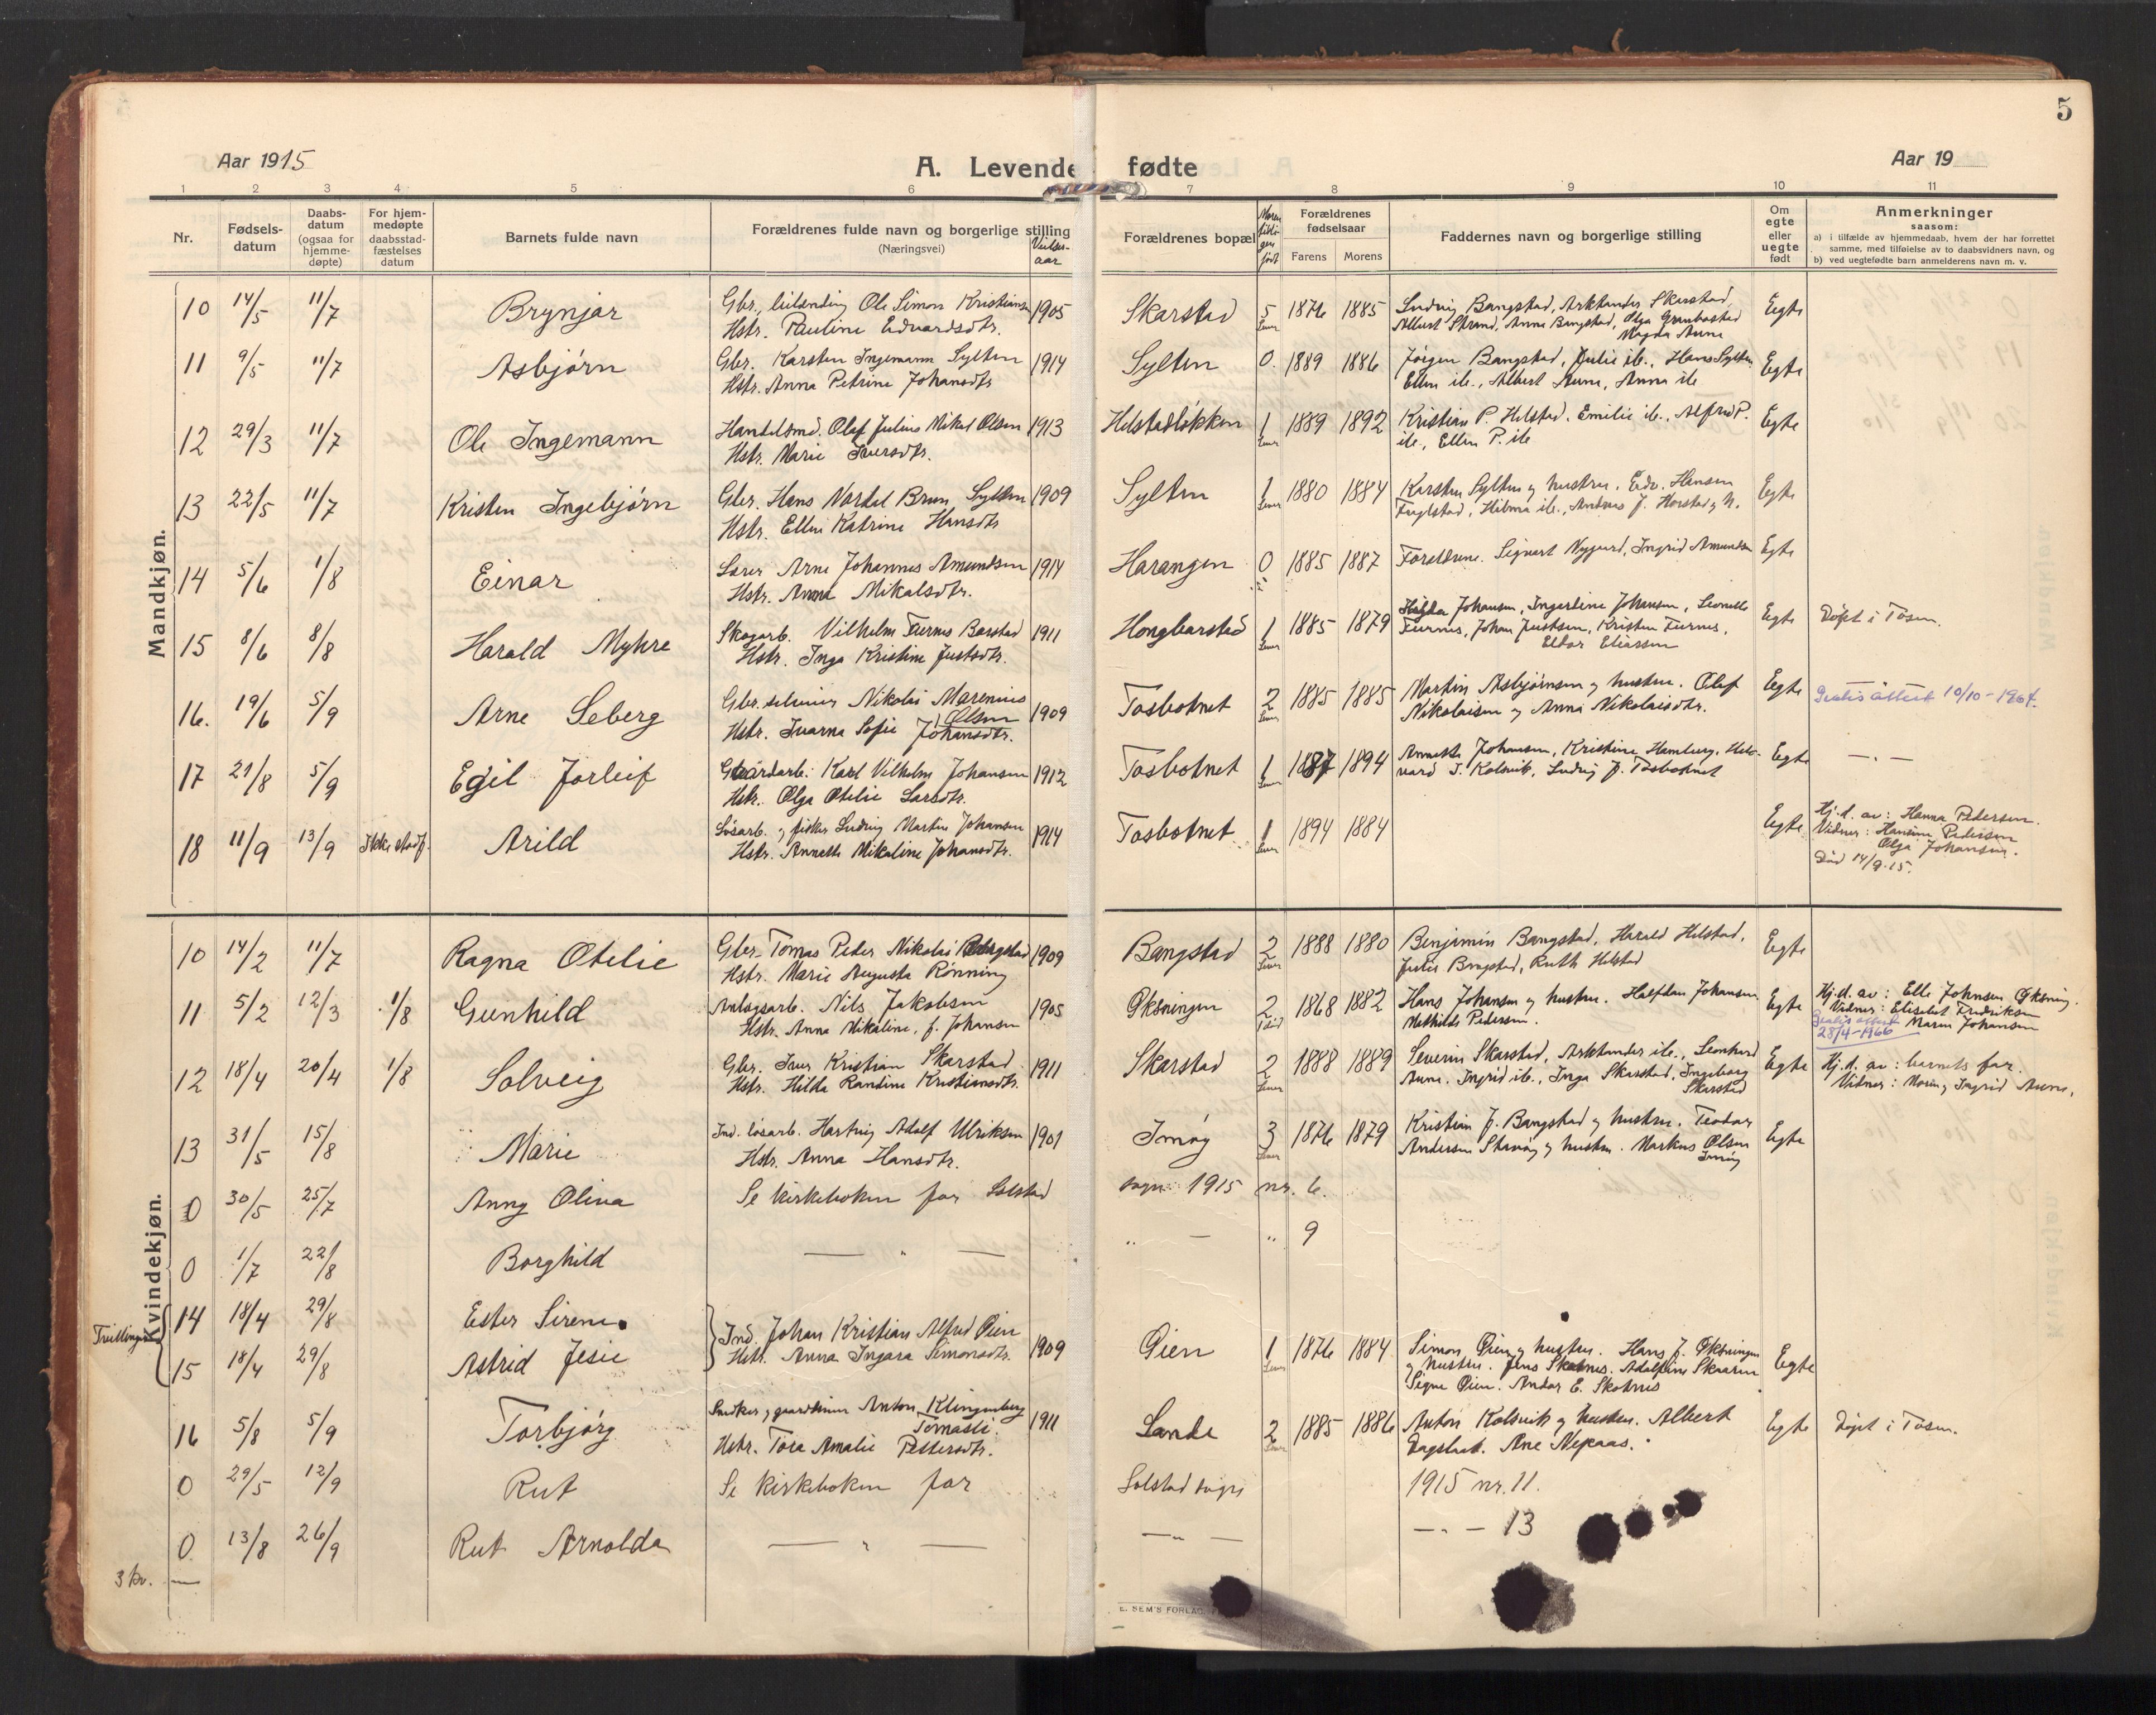 5
Aar 1915
A. Levende fødte
Aar 19
1 2 3 4 5 6 7 8 9 10 11
Nr.
Fødsels-
datum
Daabs-
datum
(ogsaa for
hjemme-
døpte)
For hjem-
medøpte
daabsstad-
fæstelses
datum
Barnets fulde navn
Forældrenes fulde navn og borgerlige stilling
(Næringsvei)
Vielses-
aar
Forældrenes bopæl
Forældrenes
fødselsaar
Farens Morens
Faddernes navn og borgerlige stilling
Om
egte
eller
uegte
født
Anmerkninger
saasom:
a) i tilfælde av hjemmedaab, hvem der har forrettet
samme, med tilføielse av to daabsvidners navn, og
b) ved uegtefødte barn anmelderens navn m. v.
Mandkjøn.
10 14/5 11/7 Brynjar Gbr. Ole Simon Kristiansen 1905 Skarstad 5 1876 1885 Ludvig Bangstad, Arktander Skarstad, Egte
Hstr. Pauline Edvardsdtr. Albert Strand, Anna Bangstad, Olga
Magda Aune
11 9/5 11/7 Asbjørn Gbr. Karsten Ingemann Sylten 1914 Sylten 0 1889 1886 Jørgen Bangstad, Julie ib., Hans Sylten Egte
Hstr. Anna Petrine Johansdtr Ellen ib., Albert Aune, Anna ib
12 29/3 11/7 Ole Ingemann Handelsmd. Olaf Julius Mikal Olsen 1913 Helstadløkken 1 1889 1892 Kristian P. Helstad. Emilie ib., Alfred P. Egte
Hstr. Marie Iversdtr. ib., Ellen P. ib
13 22/5 11/7 Kristen Ingebjørn Gbr. Hans Nordal Brun Sylten 1909 Sylten 1 1880 1884 Karsten Sylten og hustru. Edv. Hansen Egte
Hstr. Ellen Katrine Hansdtr Fuglstad, Hilma ib., Andreas J. Horstad og h.
14 5/6 1/8 Einar Lærer Arne Johannes Amundsen 1914 Harangen 0 1885 1887 Forældrene. Sigvart Nygaard, Ingrid Amundsen Egte
Hstr. Anna Mikalsdtr.
15 8/6 8/8 Harald Myhre Skogarb. Vilhelm Furnes Barstad 1911 Hongbarstad 1 1885 1879 Johansen, Ingardine Johansen, Leonelle Egte Døpt i Tosen.
Hstr. Inga Kristine Justsdtr. Furnes, Johan Justsen, Kristen Furnes,
Eldor Eliassen
16. 19/6 5/9 Arne Seberg Gbr. Nikolai Marenius 1909 Tosbotnet 2 1885 1885 Martin Asbjørnsen og hustru. Olaf Egte Gratis attest 10/10-1967.
Olsen
Hstr. Ivarna Sofie Johansdtr. Nikolaisen og Anna Nikolaisdtr.
17 21/8 5/9 Egil Jorleif Gaardarb. Karl Vilhelm Johansen 1912 Tosbotnet 1 1887 1894 Annette Johansen, Kristine Hamburg, Egte
Hstr. Olga Otelie Larsdtr. Kolsvik, Ludvig J. Tosbotnet
18 11/9 13/9 Ikke stadf. Arild Løsarb. og fisker Ludvig Martin Johansen 1914 Tosbotnet 1 1894 1884 Egte Hj.d. av: Hanna Pedersen.
Hstr. Annette Mikaline Johansdtr. Vidner: Hansine Pedersen
Olga Johansen.
Død 14/9-15.
Kvindekjøn.
10 14/2 11/7 Ragna Otelie Gbr. Tomas Peder Nikolai Bangstad 1909 Bangstad 2 1888 1880 Benjamin Bangstad, Harald Helstad, Egte
Hstr. Marie Augusta Rønning Julie Bangstad, Ruth Helstad
11 5/2 12/3 1/8 Gunhild Anlægsarb. Nils Jakobsen 1905 Øksningen 2 1868 1882 Hans Johansen og hustru. Halfdan Johansen Egte Hj.d. av: Elle Johnsen Øksning.
Hstr. Anna Mikaline, f. Johansen Mathilde Pedersen. Vidner: Elisebet Fredriksen
Gratis attest Maren Johansen
28/4-1966
12 18/4 20/4 1/8 Solveig Gbr. Iver Kristian Skarstad 1911 Skarstad 2 1888 1889 Severin Skarstad, Arktander ib., Leonhard Egte Hj.d. av: barnets far.
Hstr. Hilda Randine Kristiansdtr. Aune. Ingrid ib., Inga Skarstad, Ingeborg Vidner: Moren og Ingrid Aune.
Skarstad
13 31/5 15/8 Marie Ind. løsarb. Hartvig Adolf Ulriksen 1901 Imøy 3 1876 1879 Kristian J. Bangstad og hustru. Teodor Egte
Hstr. Anna Hansdtr. Andersen og hustru. Markus Olsen
Imøy
0 30/5 25/7 Anny Olina Se kirkeboken for Solstad sogn 1915 nr. 6.
0 1/7 22/8 Borghild — " — " — " 9
Trillinger
14 18/4 29/8 Ester Sirene Ind. Johan Kristian Alfred Øien 1909 Øien 1 1876 1884 Simon Øien og hustru. Hans J. Øksningen Egte
15 18/4 29/8 Astrid Jesie Hstr. Anna Ingara Simonsdtr. og hustru. Jens Skotnes. Adolfine
Signe Øien. Andor E. Skotnes
16 5/8 5/9 Torbjørg Snedker, Anton Klingenberg 1911 Lande 2 1885 1886 Anton Kolsvik og hustru. Albert Egte Døpt i Tosen.
Tomasli.
Hstr. Tora Amalie Pettersdtr. Dagslet. Ane Nepaas.
0 29/5 12/9 Rut Se kirkeboken for Solstad sogn 1915 nr. 11.
0 13/8 26/9 Rut Arnolda — " — — " — — " — 13
3 kv. —
E. SEM'S FORLAG